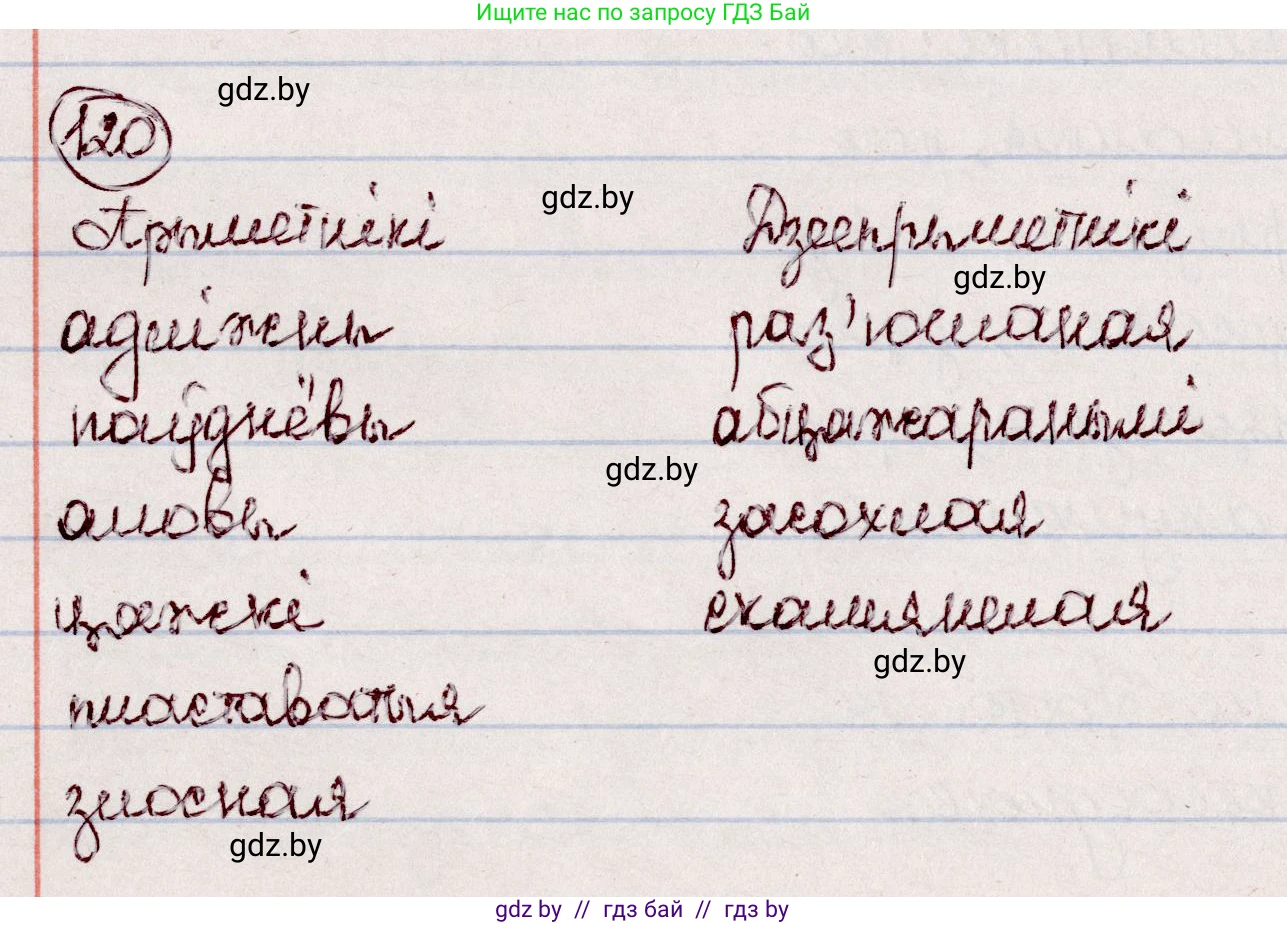 Ищите нас по запросу ГДЗ Бай
gdz.by
120
gdz.by
Прыметнікі Дзеепрыметнікі
gdz.by
адліжны раз'юшаная
паўднёвы абцяжаранымі
gdz.by
ановы засохлая
цяжкі скамянелая
gdz.by
пластаватыя
злосная
gdz.by
gdz by // гдз бай // гдз by